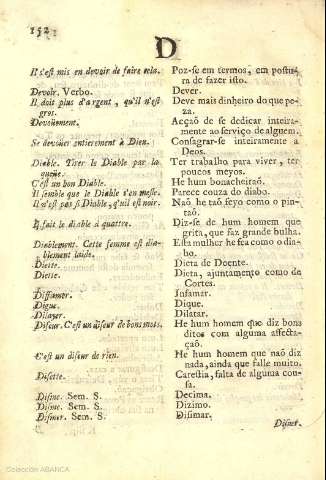 152
D
Il s'est mis en devoir de faire cela.
Poz-se em termos, em postu-
ra de fazer isto.
Devoir. Verbo.
Dever.
Il doit plus d'argent, qu'il n'est
gros.
Deve mais dinheiro do que pe-
za.
Devoüement.
Acçaõ de se dedicar inteira-
mente ao serviço de alguem.
Se devoüer entierement à Dieu.
Consagrar-se inteiramente a
Deos.
Diable. Tirer le Diable par la
queüe.
Ter trabalho para viver, ter
poucos meyos.
C'est un bon Diable.
He hum bonacheiraõ.
Il semble que le Diable s'en mesle.
Parece couza do diabo.
Il n'est pas si Diable, qu'il est noir.
Naõ he taõ feyo como o pin-
taõ.
Il fait le diable à quattre.
Diz-se de hum homem que
grita, que faz grande bulha.
Diablement. Cette femme est dia-
blement laide.
Esta mulher he fea como o dia-
bo.
Diette.
Dieta de Doente.
Diette.
Dieta, ajuntamento como de
Cortes.
Diffamer.
Infamar.
Digue.
Dique.
Dilayer.
Dilatar.
Diseur. C'est un diseur de bons mots.
He hum homem que diz bons
ditos com alguma affecta-
çaõ.
C'est un diseur de rien.
He hum homem que naõ diz
nada, ainda que falle muito.
Disette.
Carestia, falta de alguma cou-
sa.
Disme. Sem. S.
Decima.
Disme. Sem. S.
Dizimo.
Dismer. Sem. S.
Disimar.
Disner.
Colección ABANCA